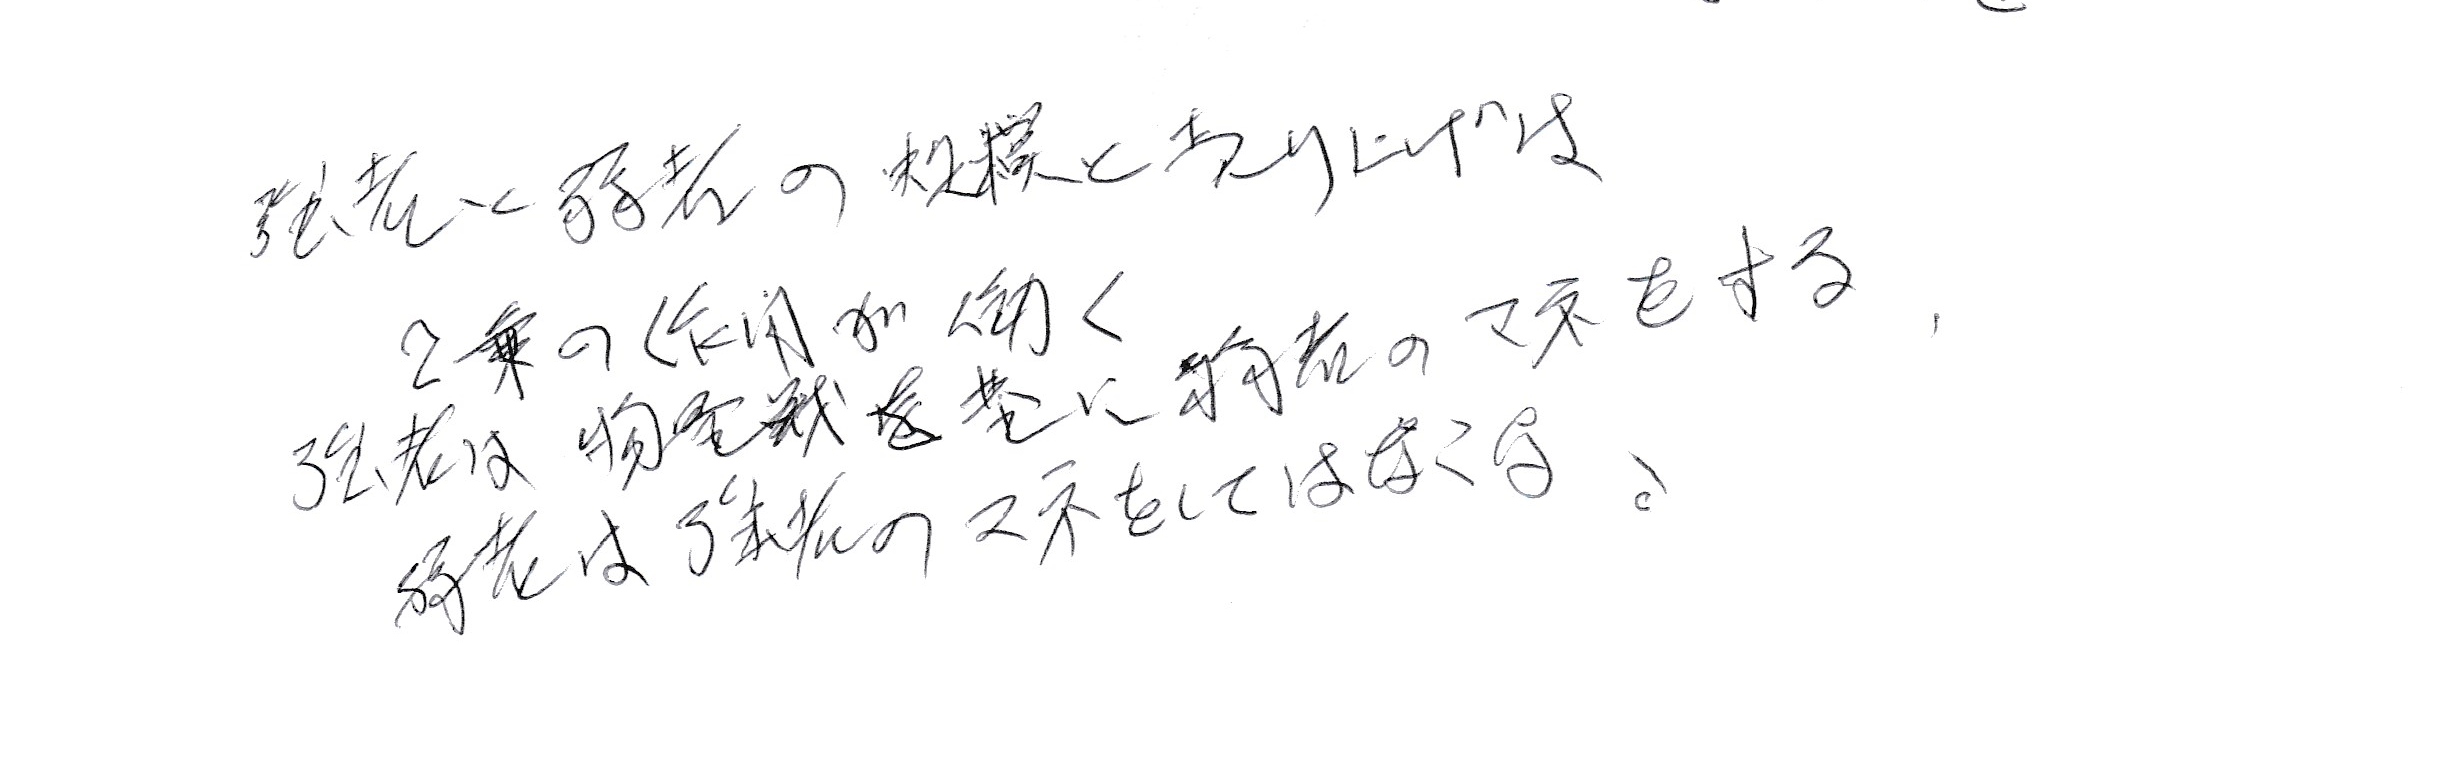 強者と弱者の規模と売り上げは
2乗の作用が働く
強者は物量戦を基に弱者のマネをする、
弱者は強者のマネをしてはならぬ。